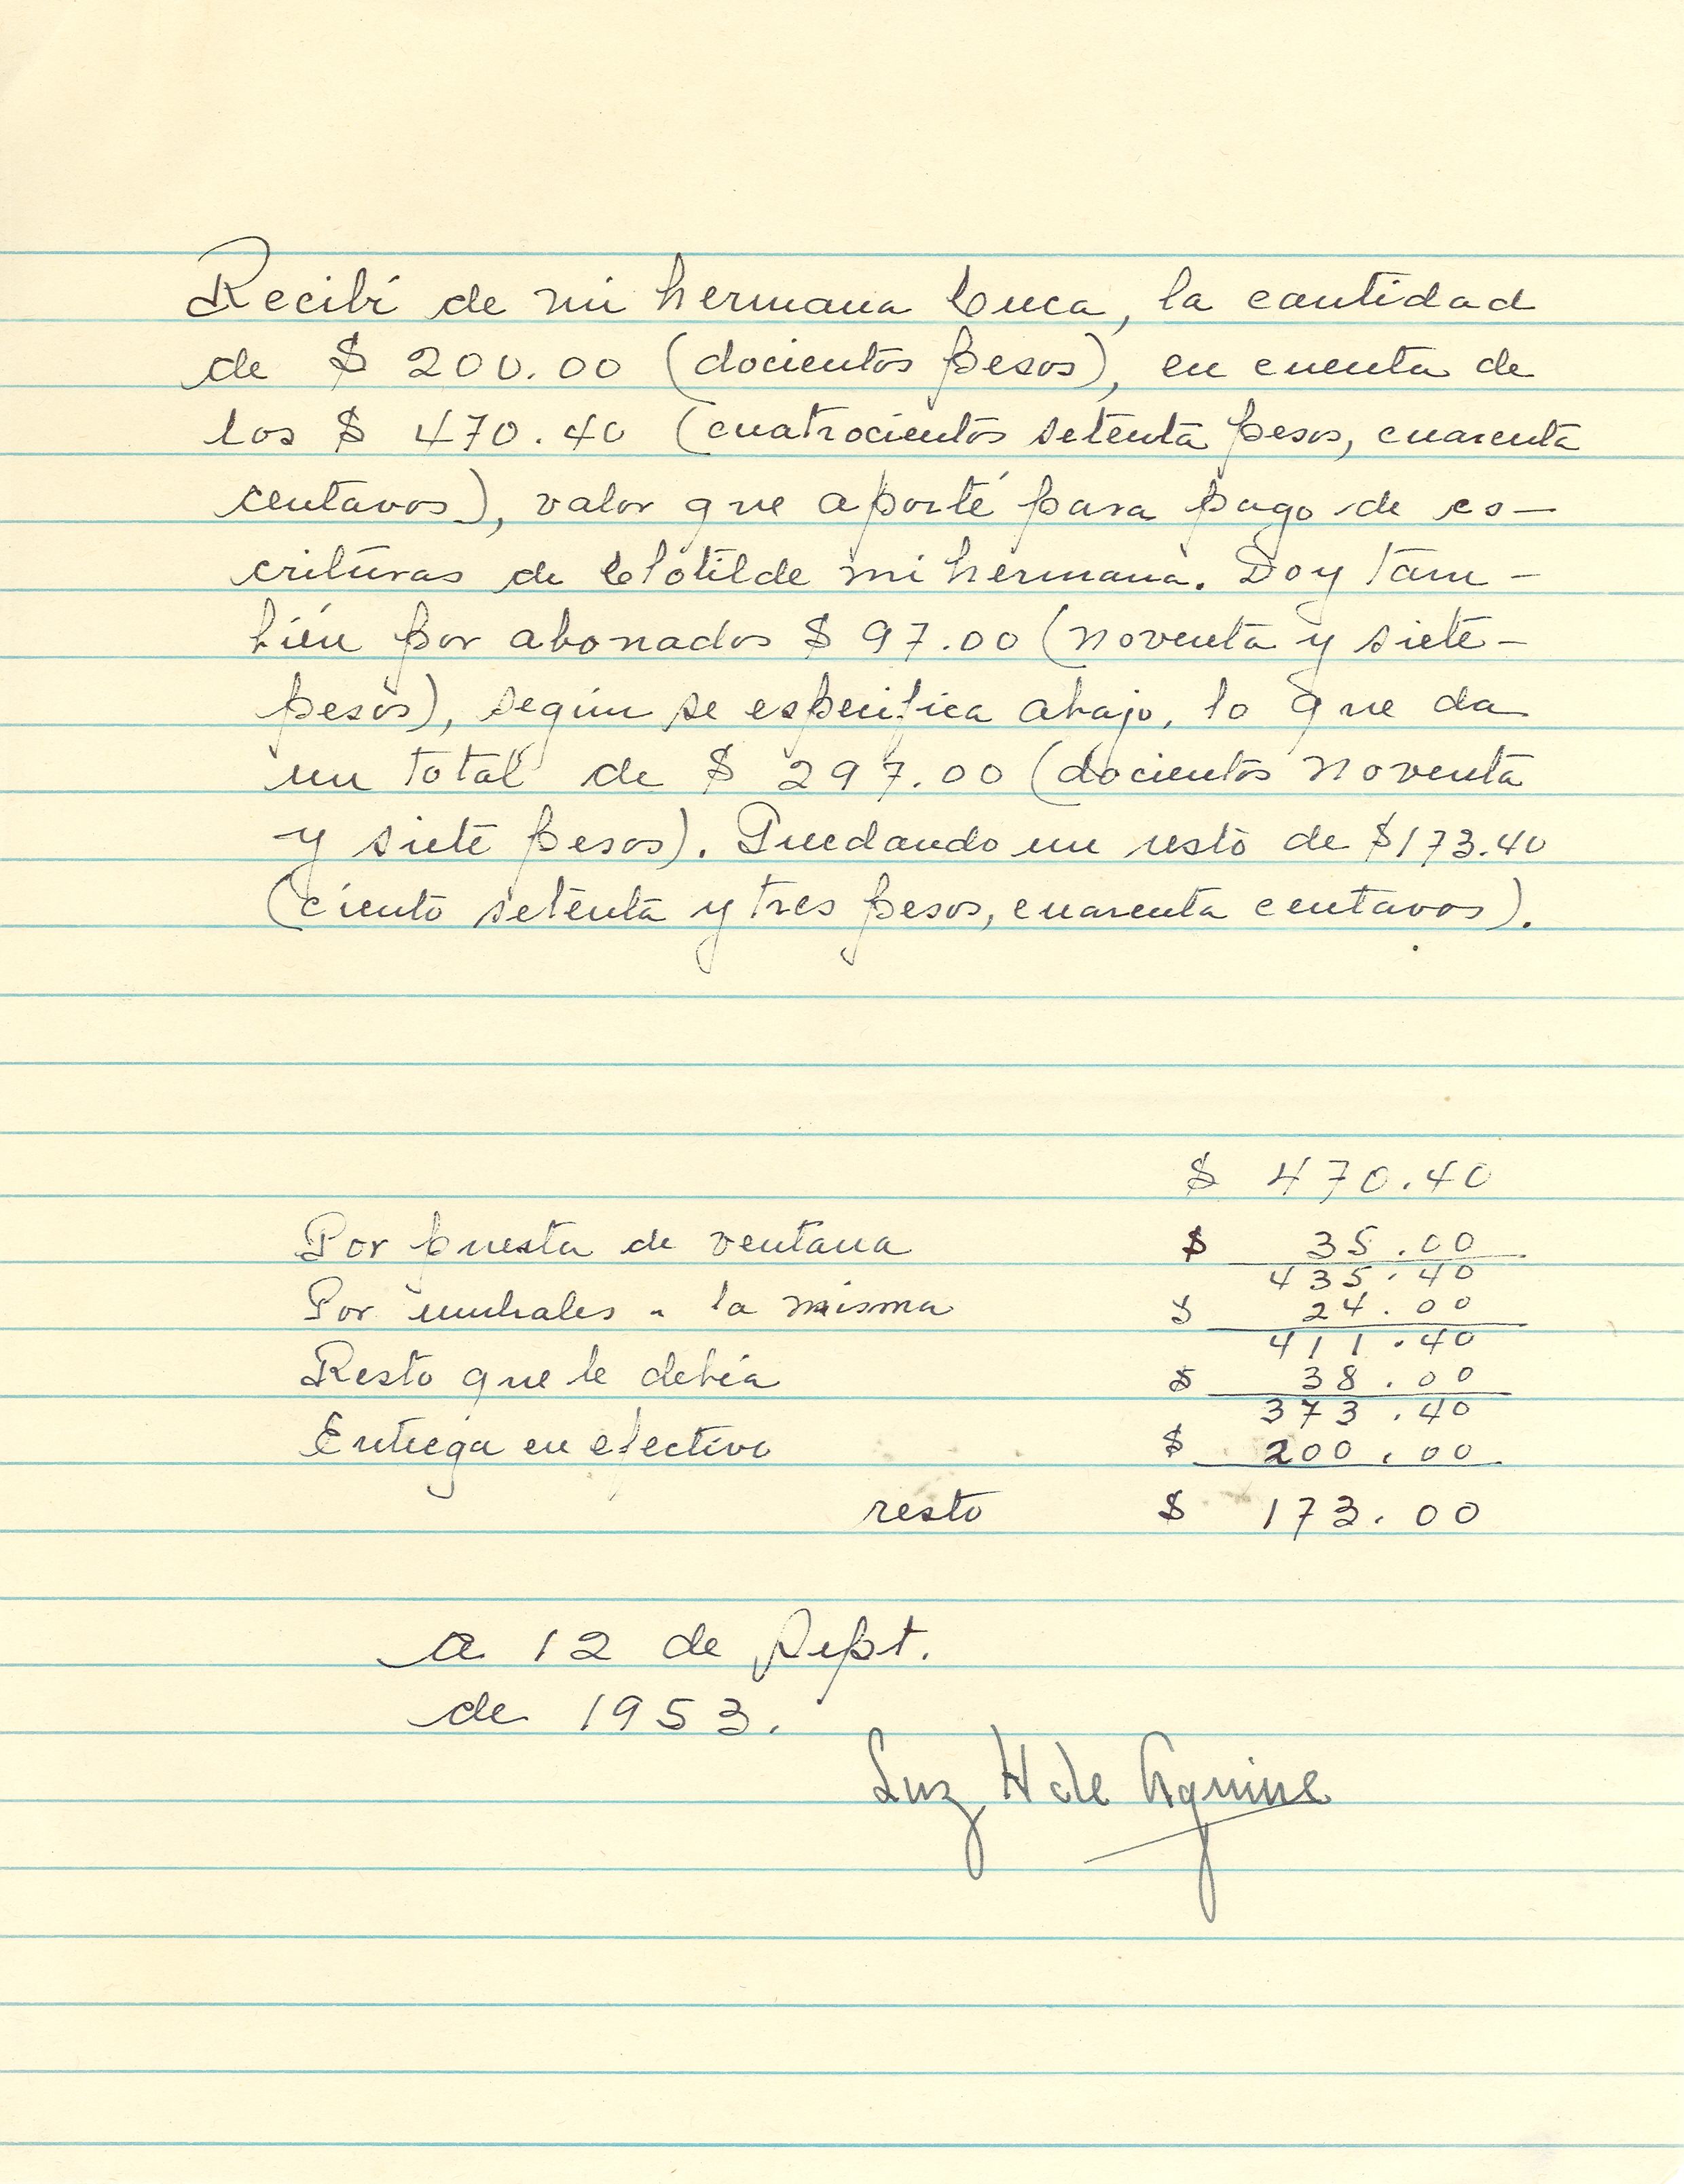 Recibí de mi hermana Cuca, la cantidad
de $ 200.00 (docientos pesos), en cuenta de
los $ 470.40 (cuatrocientos setenta pesos, cuarenta
centavos), valor que aporté para pago de es-
crituras de Clotilde mi hermana. Doy tam-
bién por abonados $ 97.00 (noventa y siete-
pesos), según se especifica abajo, lo que da
un total de $ 297.00 (docientos noventa
y siete pesos). Quedando un resto de $173.40
(ciento setenta y tres pesos, cuarenta centavos).
$ 470.40
Por puesta de ventana $ 35.00
435.40
Por umbrales a la misma $ 24.00
411.40
Resto que le debía $ 38.00
373.40
Entrega en efectivo $ 200.00
resto $ 173.00
a 12 de Sept.
de 1953.
Luz H de